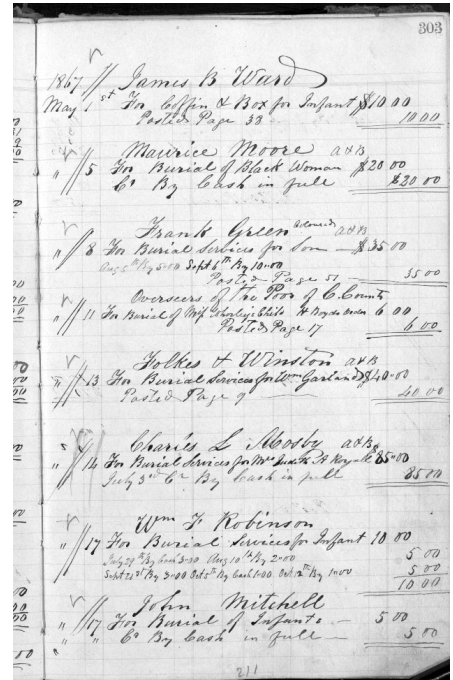 303
1867 James B Ward
May 1st For Coffin & Box for Infant $10 00
Posted Page 33 10 00
Maurice Moore a & B
" 5 For Burial of Black Woman $20 00
Cr By Cash in full $20 00
Frank Green a & B
" 8 For Burial Services for Son $35 00
Aug 5th By 5=00 Sept 6th By 10=00
Posted Page 35 00
Overseers of the Poor of C. County
" 11 For Burial of Child Order 6 00
Posted Page 17 6 00
Folkes & Winston a & B
" 13 For Burial Services for Wm Garland $40=00
Posted Page 9 40 00
Charles L Mosby a & B
" 14 For Burial Services for Mrs Judith A Royall 85=00
July 3rd Cr By Cash in full 85 00
Wm F Robinson
" 17 For Burial Services for Infant 10 00
July 29th By Cash 3=00 Aug 10th By 2=00 5 00
Sept 21st By 3=00 Oct 5th By Cash 1=00 Oct 12th By 1=00 5 00
10 00
John Mitchell
" 17 For Burial of Infant 5 00
" " Cr By Cash in full 5 00
211